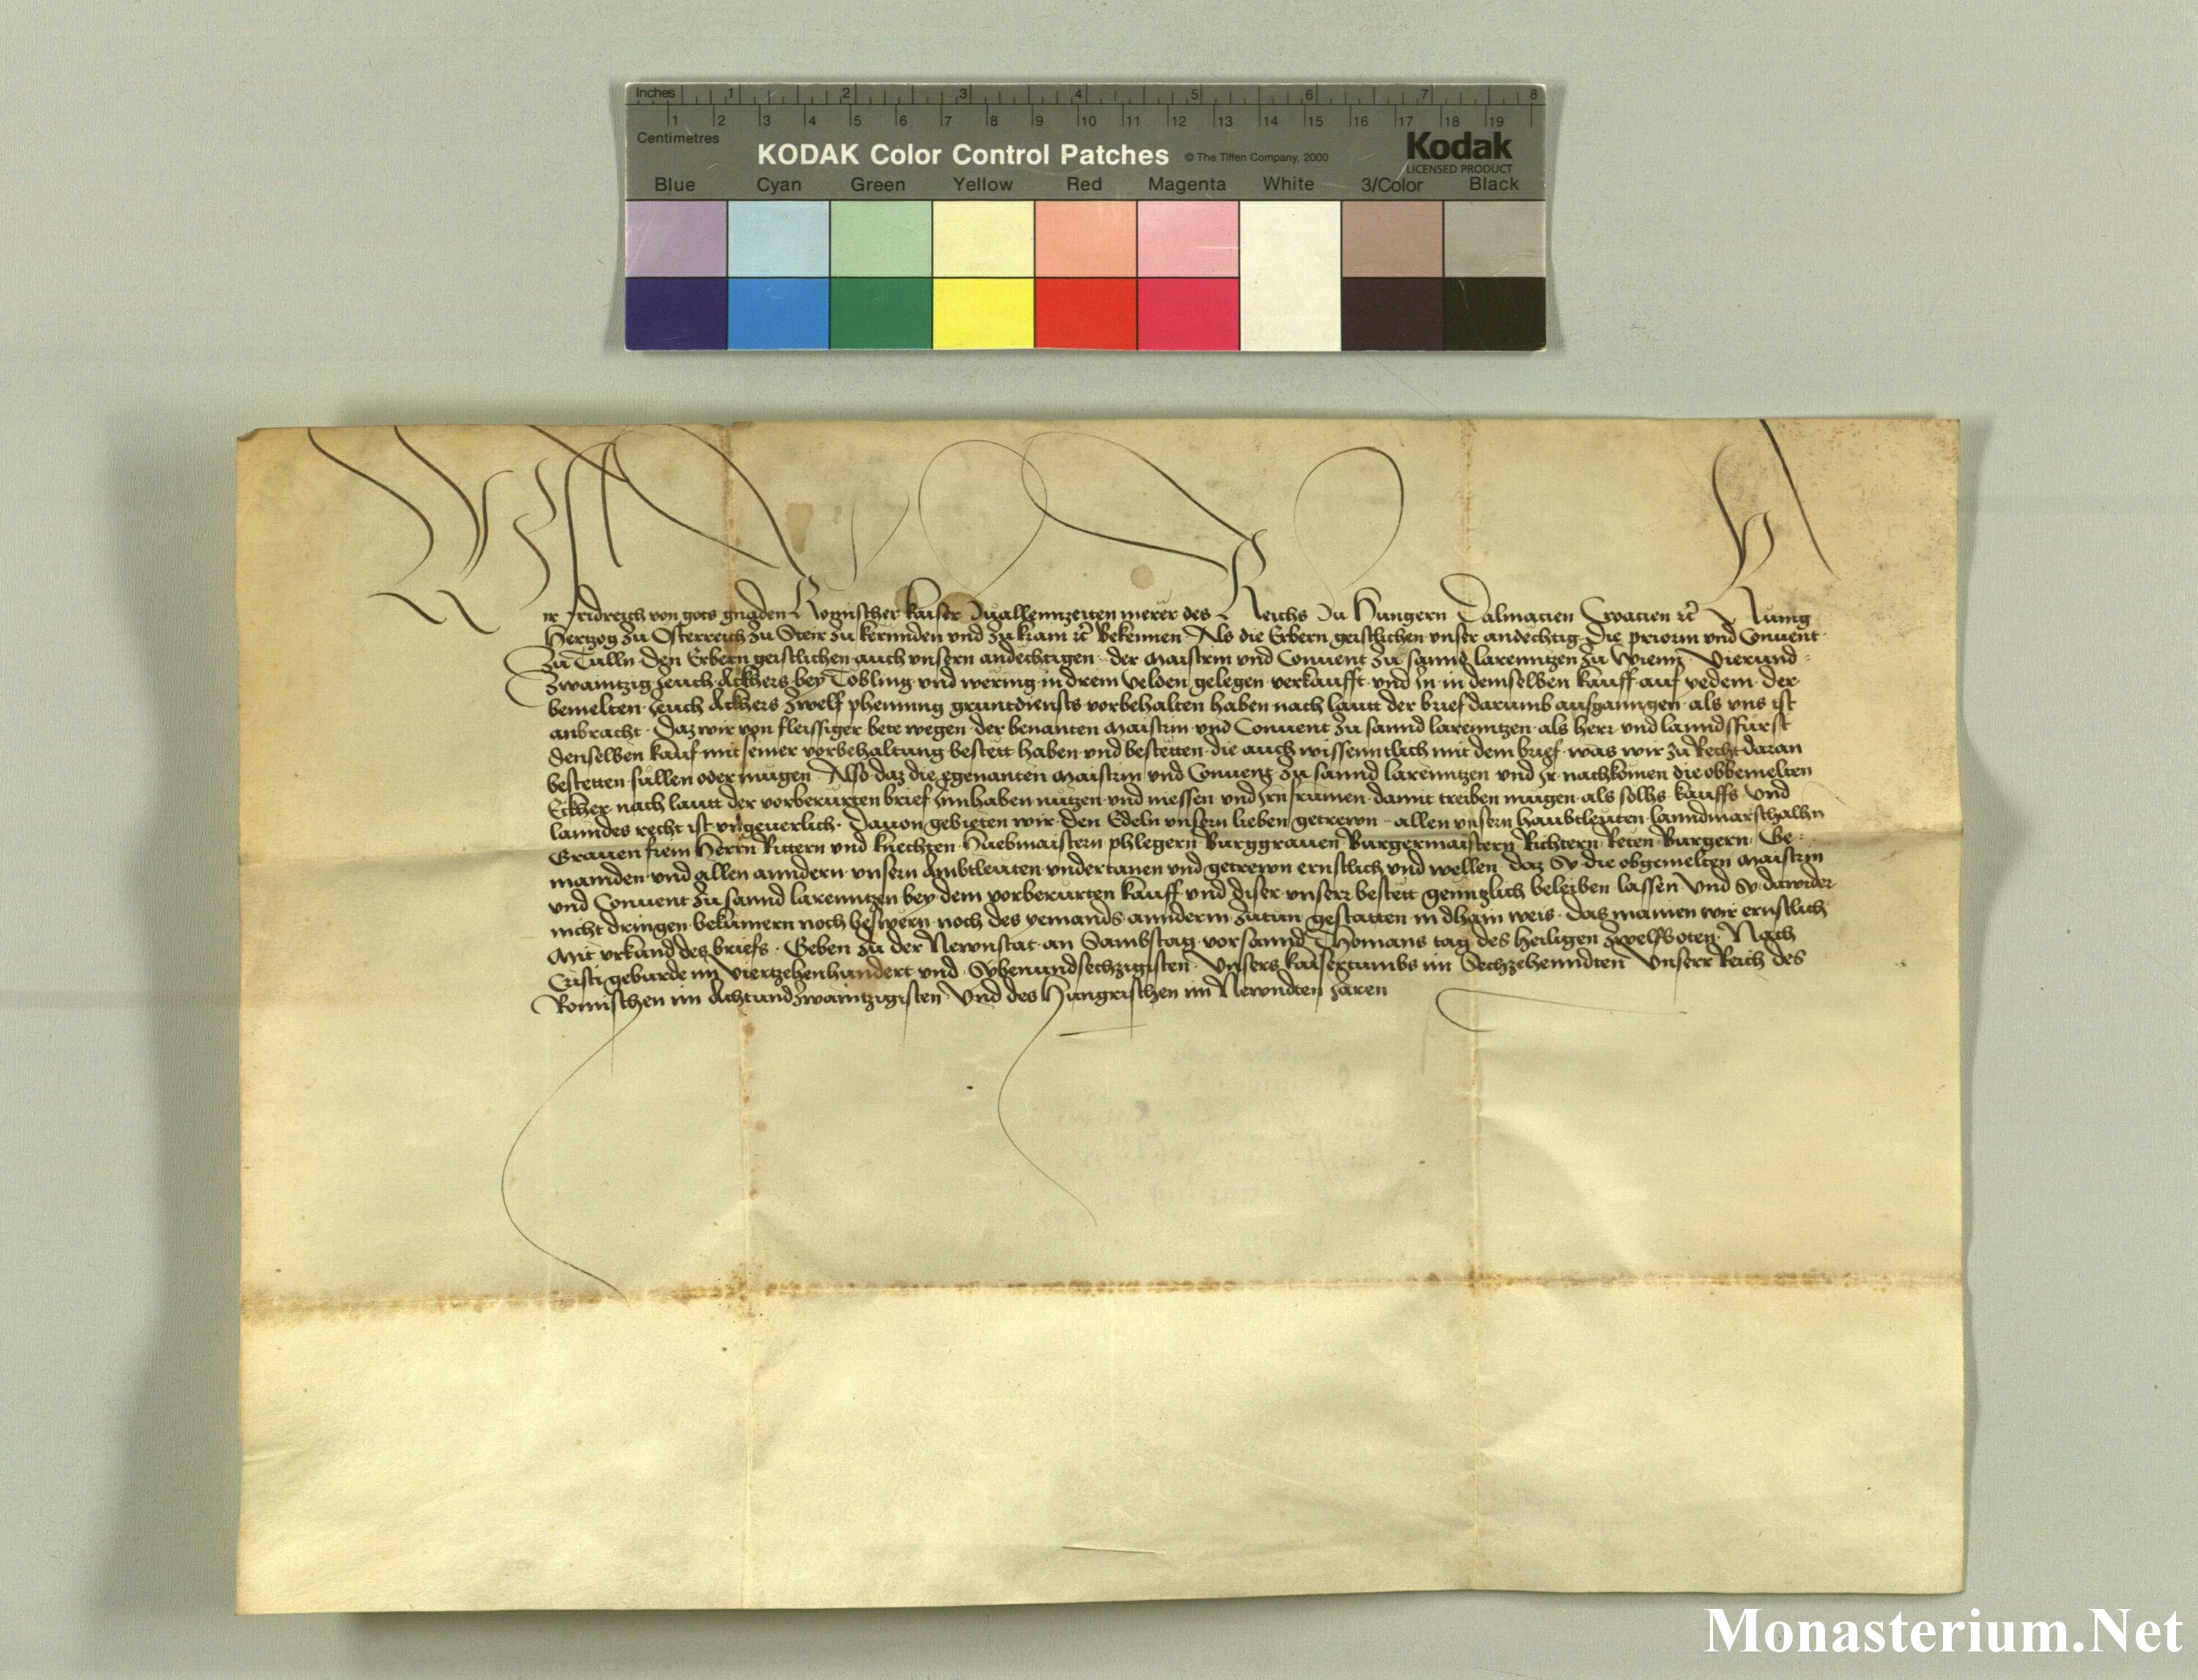 Inches 1 2 3 4 5 6 7 8
1 2 3 4 5 6 7 8 9 10 11 12 13 14 15 16 17 18 19
Centimetres
KODAK Color Control Patches © The Tiffen Company, 2000 Kodak
LICENSED PRODUCT
Blue Cyan Green Yellow Red Magenta White 3/Color Black
Wir Fridreich von gots gnaden Romischer kaiser Zuallennzeiten merer des Reichs Zu Hungern Dalmacien Croacien etc Kunig
Hertzog zu Osterreich zu Steir zu kernnden und zu krain etc Bekennen Als die Erbern geistlichen unser andechtig die priorin und Convent
Zu Tulln den Erbern geistlichen auch unsern andechtigen der Maistrin und Convent zu sannd larenntzen zu Wienn Vierund-
zwaintzig Jeuch Akhers bey Tobling und wering in drein velden gelegen verkaufft und In in demselben kauff auf yedem der
bemelten Jeuch Akhers zwelf phenning gruntdiensts vorbehalten haben nach lautt der brief darumb ausgangen als uns ist
anbracht Daz wir von fleissiger bete wegen der benanten Maistrin und Convent zu sannd larenntzen als herr und lanndsfürst
denselben kauf mit seiner vorbehaltung bestett haben und bestetten die auch wissenntlich mit dem brief was wir zu Recht daran
bestetten sullen oder mugen Also daz die egenanten Maistrin und Convent zu sannd larenntzen und Ir nachkomen die obbemelten
Ekher nach lautt der vorberurten brief Innhaben nutzen und niessen und Irn frumen damit treiben mugen als solhs kauffs und
lanndes recht ist ungeverlich. Davon gebieten wir den Edeln unsern lieben getrewn allen unsern haubtleuten lanndmarschalhn
Graven freien Herrn Rittern und knechten Huebmaistern phlegern Burggraven Burgermaistern Richtern Reten Burgern Ge-
mainden und allen anndern unsern Ambtleuten undertanen und getrewn ernstlich und wellen daz Sy die obgemelten Maistrin
und Convent zu sannd larenntzen bey dem vorberurten kauff und diser unserr bestett genntzlich beleiben lassen Und Sy dawider
nicht dringen bekumern noch beswern noch des yemands annderm zutun gestatten in dhain weis. Das mainen wir ernstlich
Mit urkund des briefs. Geben zu der Newnstat an Sambstag vor sannd Thomans tag des heiligen zwelfboten. Nach
Cristi geburde im viertzehenhundert und Sybenundsechzigisten Unsers kaisertumbs im Sechzehenndten Unserr Reich des
Romischen im Achtundzwaintzigisten Und des Hungrischen im Newndten Jaren
Monasterium.Net